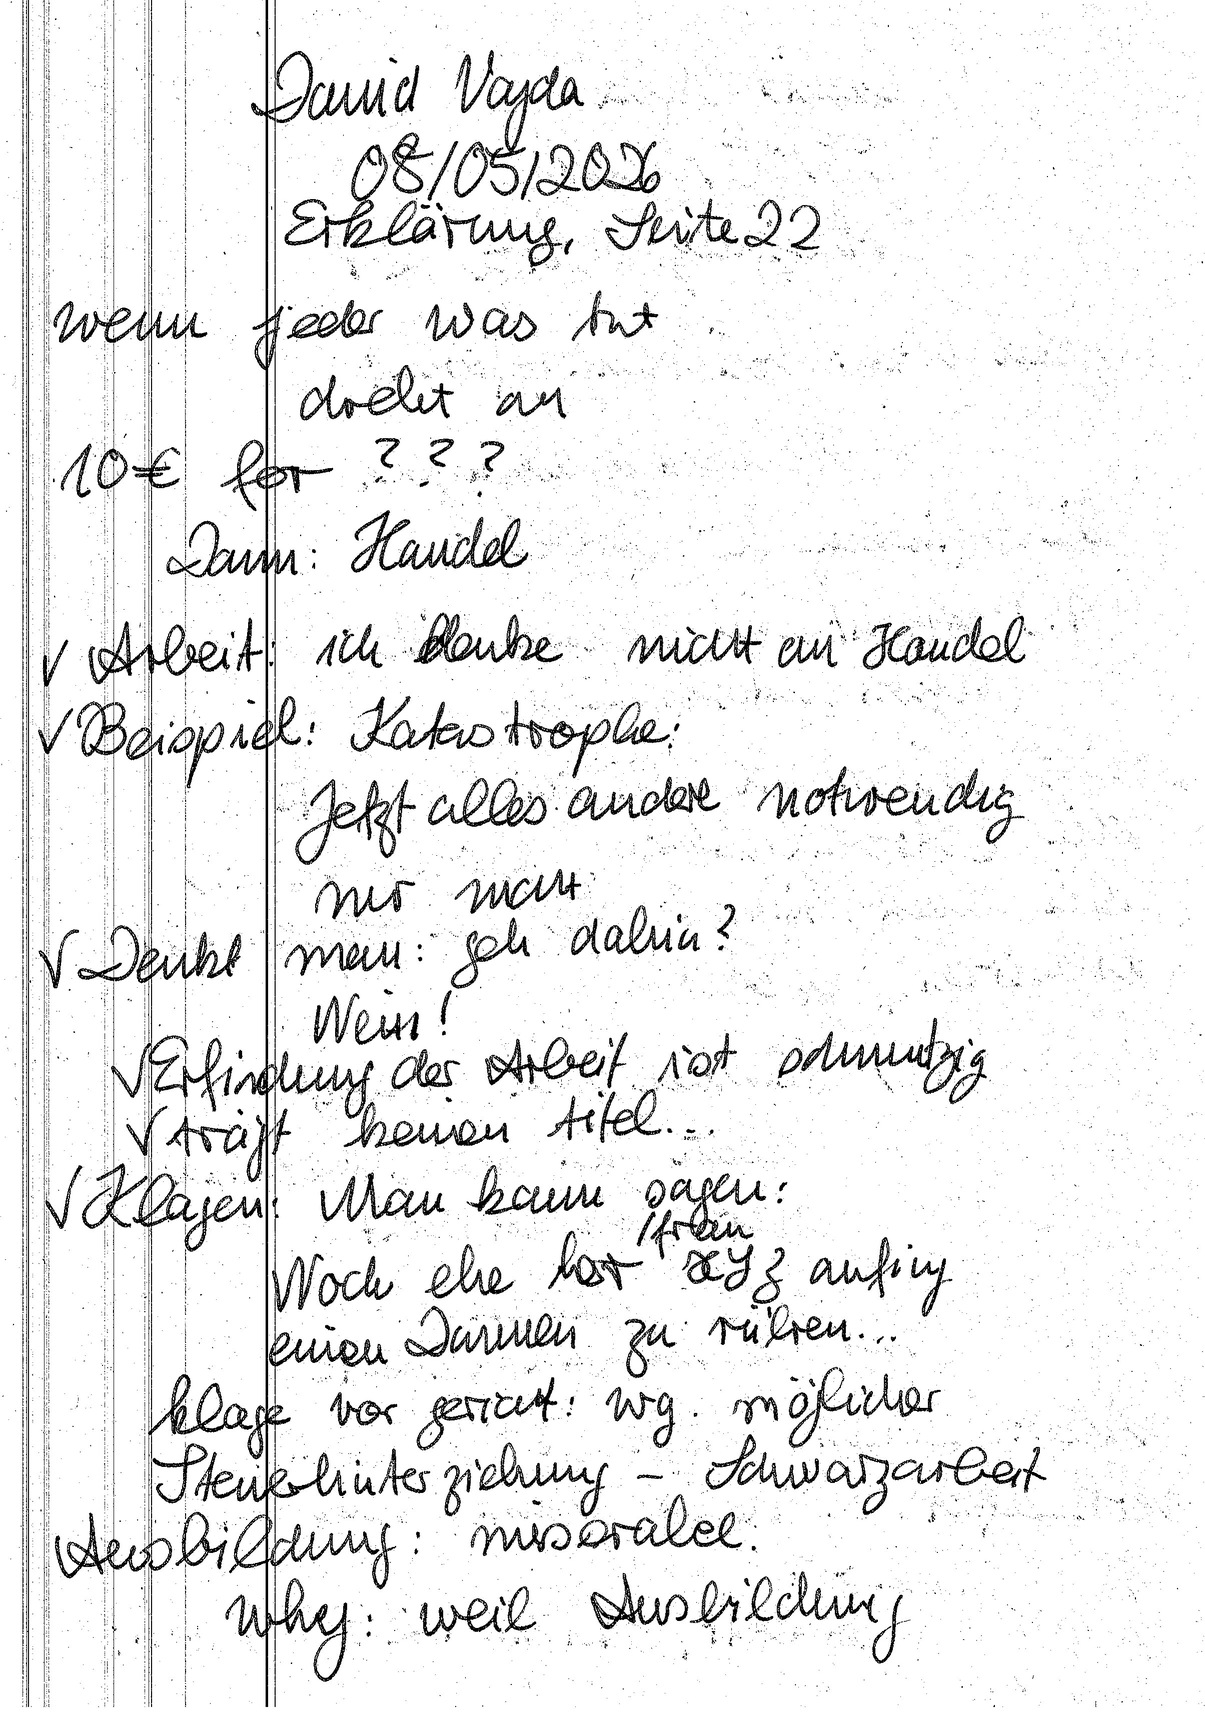 David Vajda
08/05/2026
Erklärung, Seite 22
wenn jeder was tut
droht an
10€ for ???
Dann: Handel
√ Arbeit: ich denke nicht an Handel
√ Beispiel: Katastrophe:
Jetzt alles andere notwendig
nur nicht
√ Denkt man: geh dahin?
Nein!
√ Erfindung der Arbeit ist schmutzig
√ trägt keinen titel...
√ Klagen: Man kann sagen:
/frau
Noch ehe herr XYZ anfing
einen Daumen zu rühren...
klage vor gericht: wg. möglicher
Steuerhinterziehung - Schwarzarbeit
Ausbildung: miserabel.
Why: weil Ausbildung